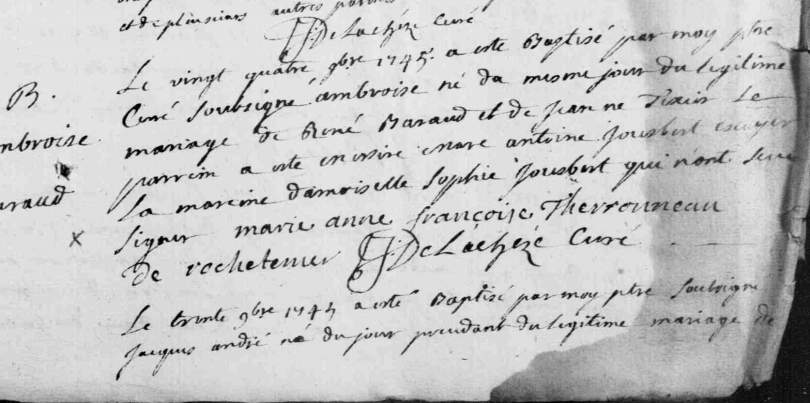 et de plusieurs autres
De Lachézé Curé
Le vingt quatre 9bre 1745 a esté Baptisé par moy ptre
B.
Curé soussigné ambroise né du mesme jour du legitime
mariage de René Baraud et de Jeanne Texier Le
mbroise
parrein a esté messire antoine Jousbert escuyer
La mareine damoiselle Sophie Jousbert qui n'ont sceu
araud
signer marie anne françoise Therronneau
x
de rochetemer De Lachézé Curé
Le trente 9bre 1745 a esté Baptisé par moy ptre soubsigné
Jacques andré né du jour precedant du legitime mariage de